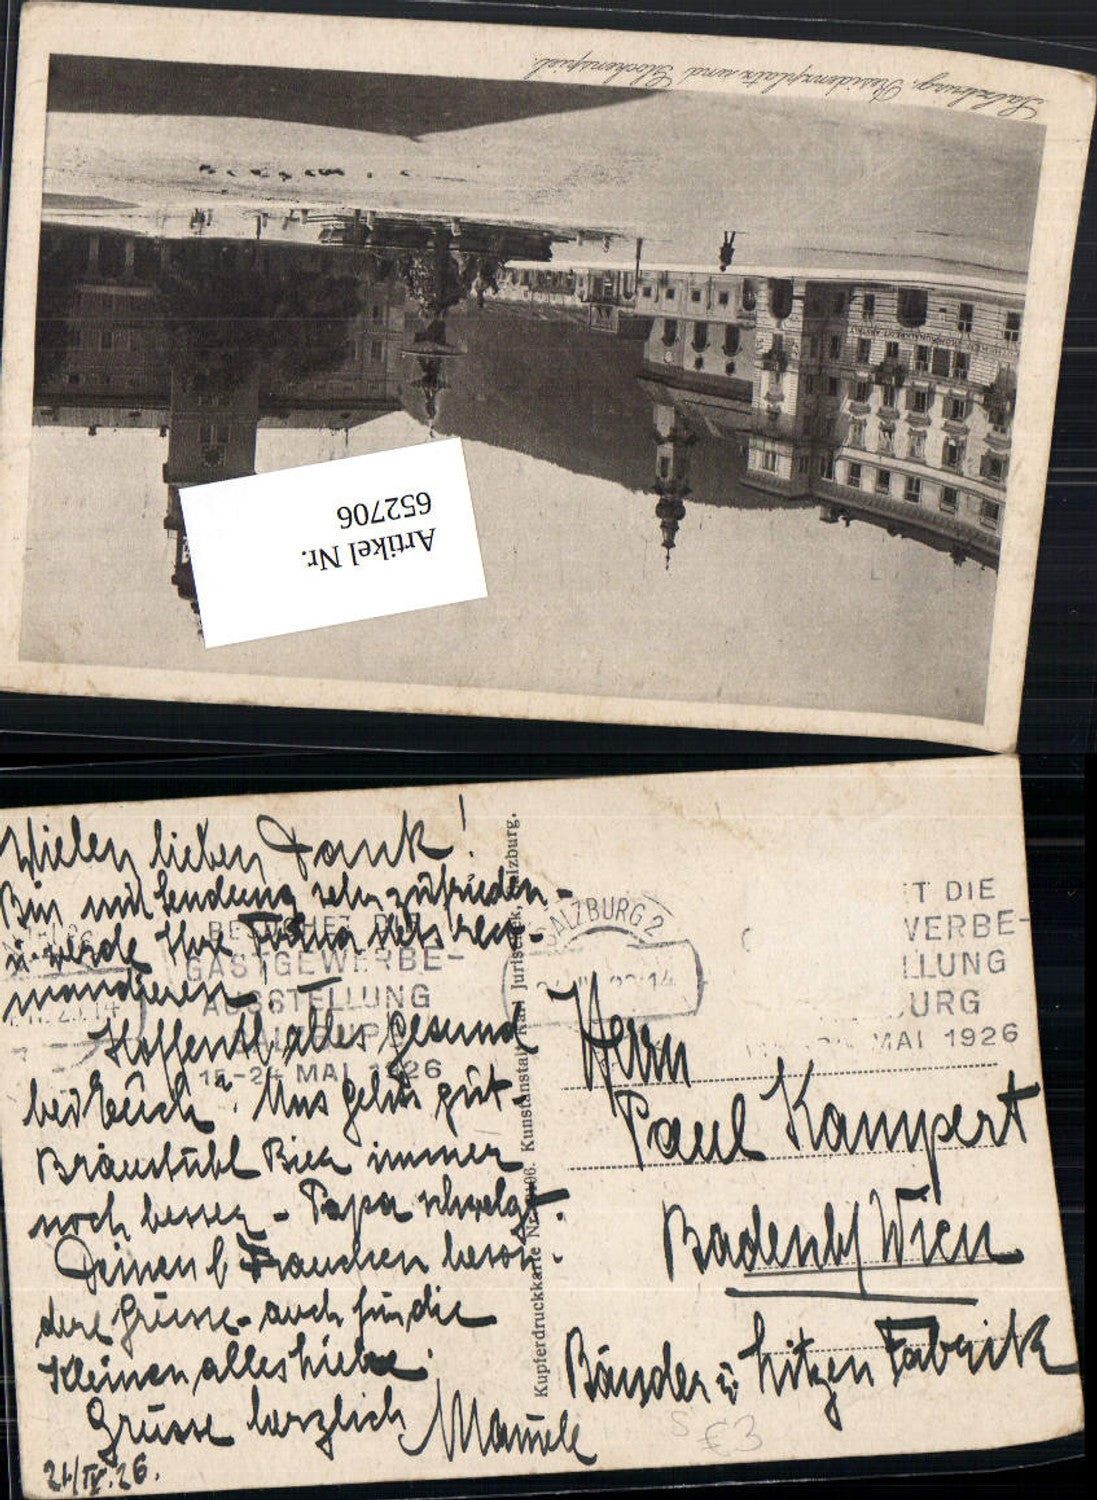 Salzburg, Residenzplatz und Glockenspiel.
Artikel Nr.
652706
Vielen lieben Dank!
Bin mit Sendung sehr zufrieden -
u. werde Ihre Firma stets
mandieren -
Hoffentl. alles gesund
bei Euch. Uns gehts gut -
Bräustübl Bier immer
noch besser - Papa schwelgt.
Deinen l. Frauchen beson-
dere Grüsse - auch für die
Kleinen alles Liebe.
Grüsse herzlich
21/IV. 26.
BESUCHET DIE
GASTGEWERBE-
AUSSTELLUNG
15-24 MAI 1926
Kupferdruckkarte Kunstanstalt Karl Jurischek, Salzburg.
SALZBURG 2
T DIE
WERBE-
LLUNG
BURG
MAI 1926
Herrn
Paul Kampert
Baden b/ Wien
Bänder u. Litzen Fabrik
S €3